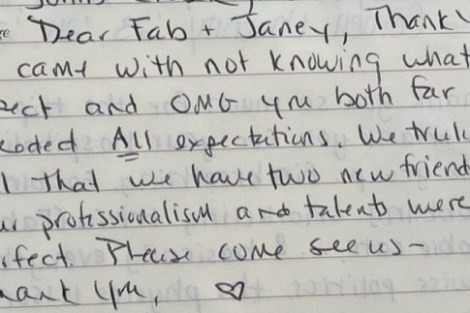 Dear Fab + Janey, Thank
came with not knowing what
ect and OMG you both far
eeded All expectations. We trul
l that we have two new friend
professionalism and talents were
rfect. Please come see us -
hank you, ♡